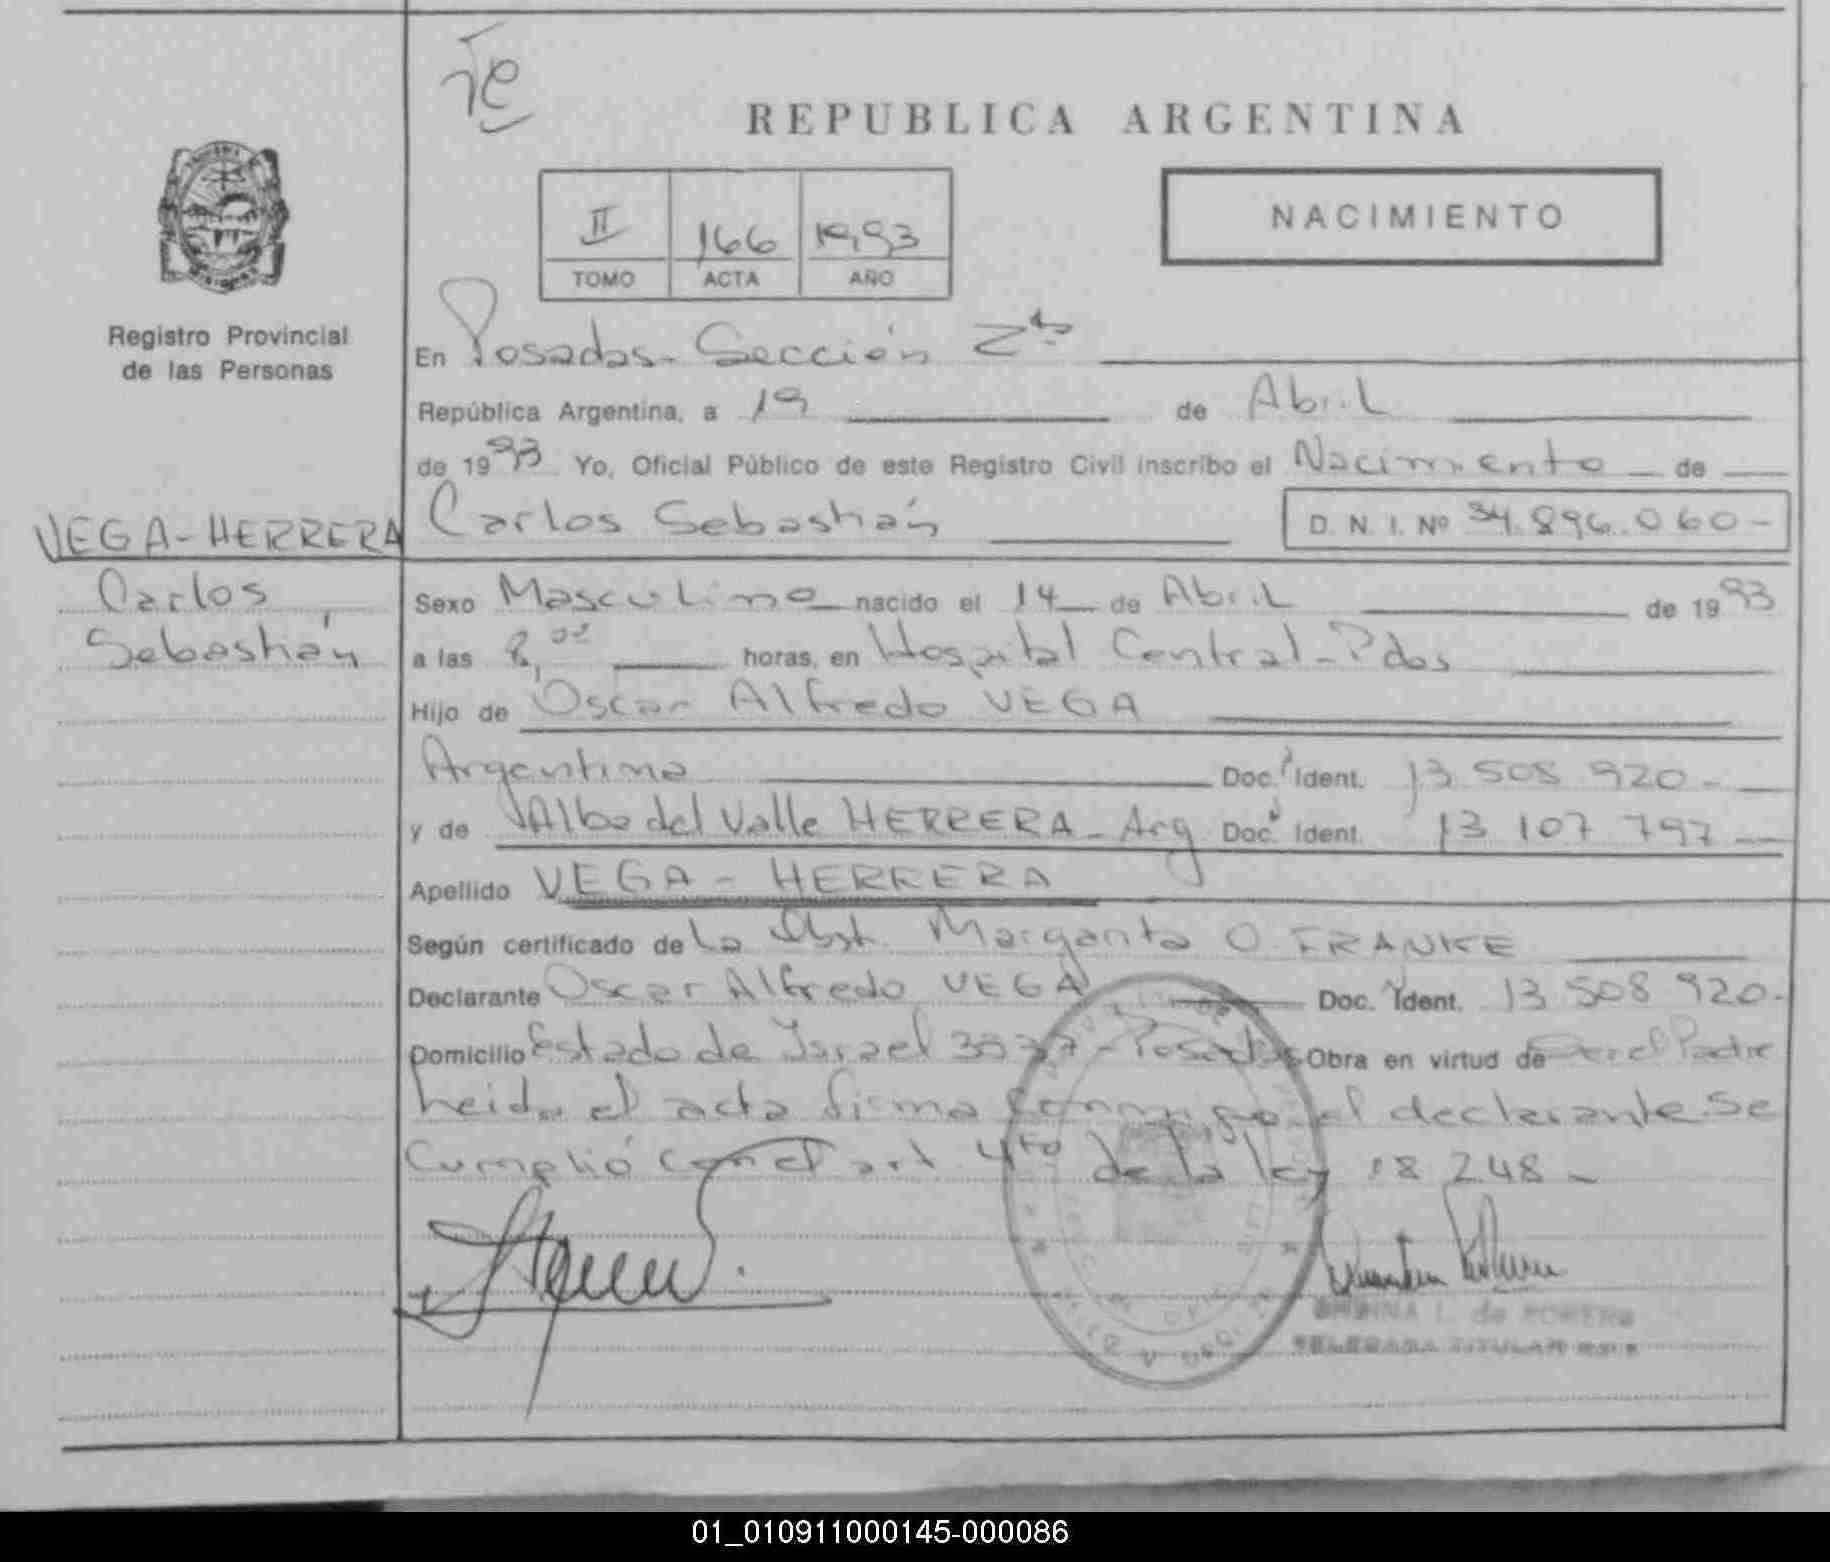 REPUBLICA ARGENTINA
II 166 1993
TOMO ACTA AÑO
NACIMIENTO
Registro Provincial
de las Personas
En Posadas - Sección 2da
República Argentina, a 19 de Abril
de 1993 Yo, Oficial Público de este Registro Civil inscribo el Nacimiento de
Carlos Sebastián
D. N. I. Nº 34.896.060-
VEGA-HERRERA
Carlos
Sebastián
Sexo Masculino nacido el 14 de Abril de 1993
a las 8,00 horas, en Hospital Central - Pdas
Hijo de Oscar Alfredo VEGA
Argentina Doc. Ident. 13 508 920-
y de Alba del Valle HERRERA - Arg Doc. Ident. 13 107 797
Apellido VEGA - HERRERA
Según certificado de La Obst. Margarita O. FRANKE
Declarante Oscar Alfredo VEGA Doc. Ident. 13 508 920-
Domicilio Estado de Israel - Posadas Obra en virtud de Ser el Padre
Leida el acta firma conmigo el declarante Se
Cumplió con el art. 4to de la ley 18 248 -
L. de
TITULAR
01_010911000145-000086